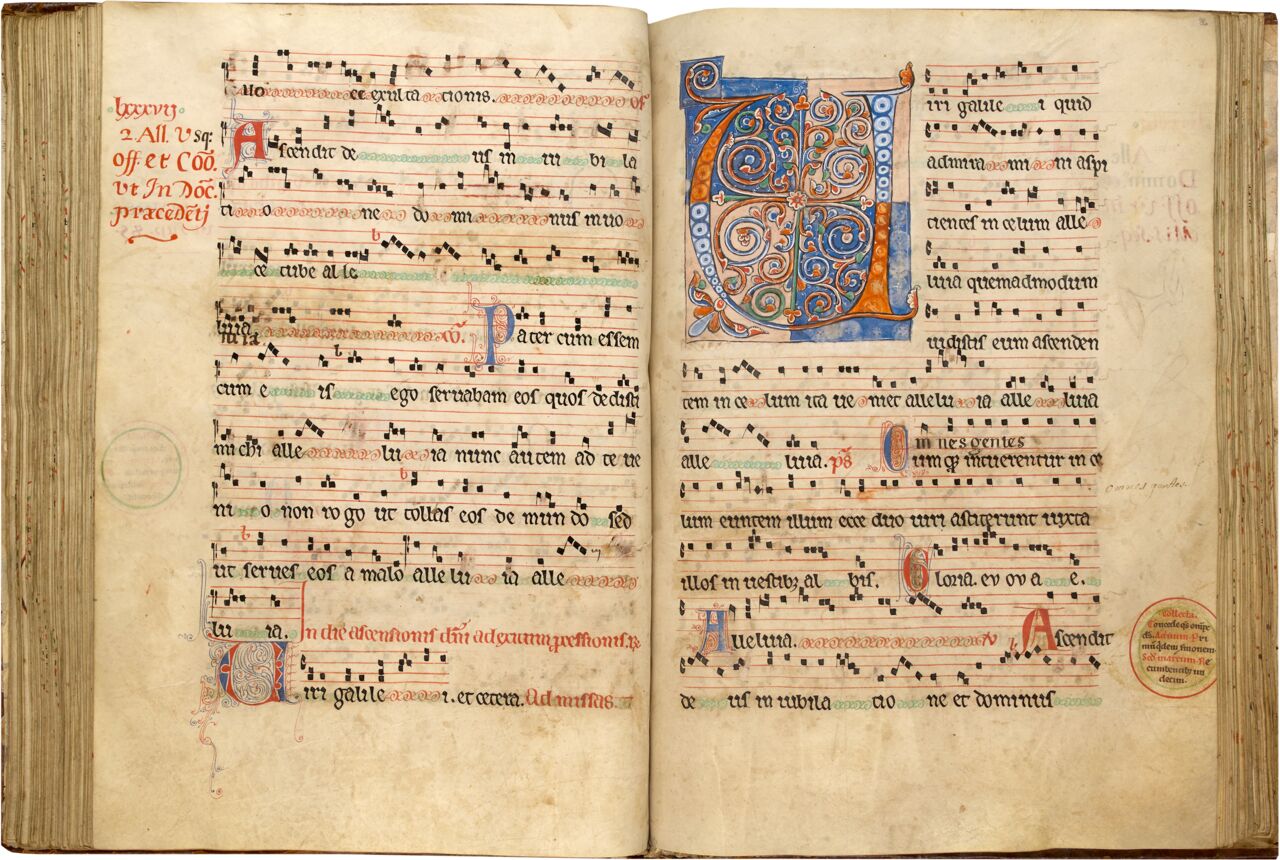 lxxxvij
2 All. V sq:
off et Cōō.
Vt In Dōc.
præcedētj
ee exulta tionis.
Ascendit de us in iu bi la
ti o ne do mi nus in uo
ce tube al le
luia co. Pater cum essem
cum e is ego seruabam eos quos dedisti
michi alle lu ia nunc autem ad te ue
ni o non rogo ut tollas eos de mundo sed
ut serues eos a malo alle lu ia alle
lu ia. In die ascensionis dn̄i ad
Uiri galile i. et cetera. Ad missas.
Uiri galile i quid
admira mi ni aspi
cientes in celum alle
luia quemadmodum
uidistis eum ascenden
tem in ce lum ita ue niet allelu ia alle luia
alle luia. ps̄ Omnes gentes
Cumq̨ intuerentur in ce
omnes gentes.
lum euntem illum ecce duo uiri astiterunt iuxta
illos in uestibȝ al bis. Gloria. ev ov a e.
Alleluia. v Ascendit
de us in iubila tio ne et dominus
Collecta.
Concede